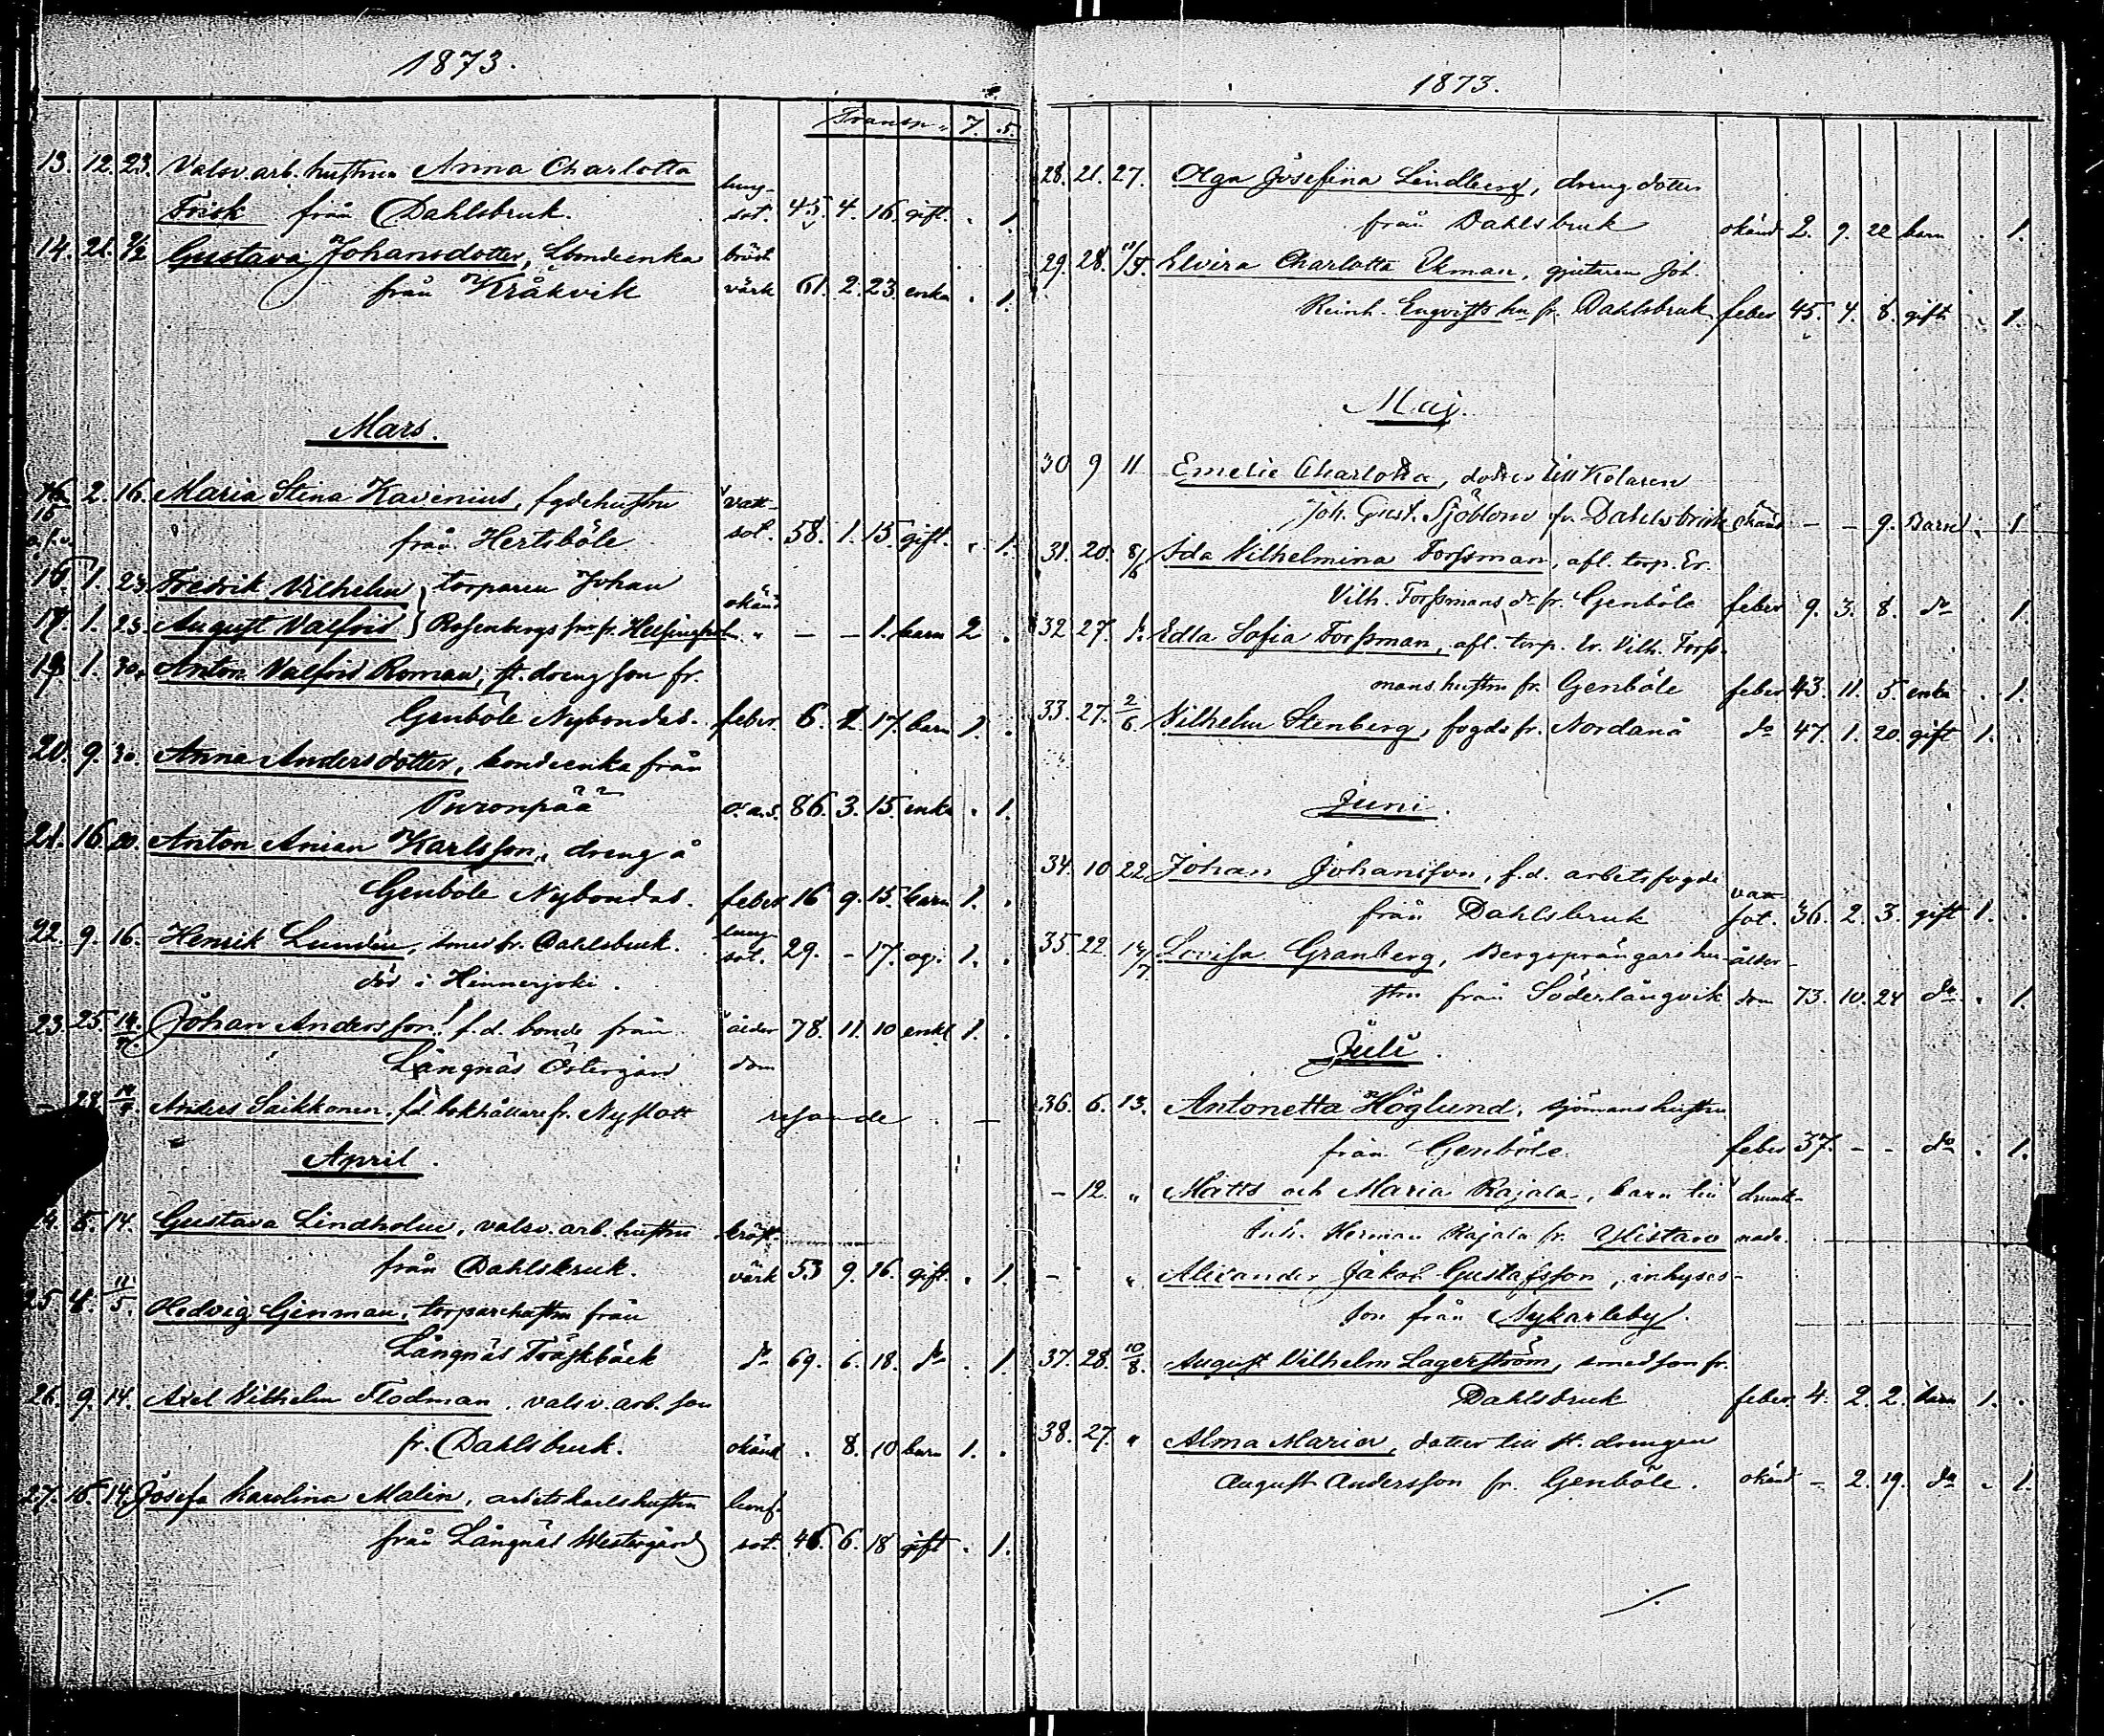 1873.
Transp. „ 7. 5.
13. 12. 23. Valsv. arb. hustrun Anna Charlotta lung-
Frisk från Dahlsbruk. sot. 45. 4. 16. gift. . 1.
14. 21. 2/2 Gustava Johansdotter, bondeenka bröst
från Kråkvik värk 61. 2. 23. enka . 1.
Mars.
15 2. 16. Maria Stina Kavenius, fgdehustru vatt-
från Hertsböle sot. 58. 1. 15. gift. . 1.
16. 1. 23. Fredrik Vilhelm } torparen Johan okänd
17. 1. 23. August Valfrid } Rosenbergs „ — — 1. barn 2 .
19. 1. 30. Anton Valfrid Roman, st. dreng son fr.
Genböle Nybondas. feber. 6. 2. 17. barn 1. .
20. 9. 30. Anna Andersdotter, bondeenka från
Puronpää o.a.s. 86. 3. 15. enka . 1.
21. 16. 20. Anton Anian Karlsson, dreng å
Genböle Nybondas. feber 16 9. 15. barn 1. .
22. 9. 16. Henrik Lundin, smed fr. Dahlsbruk. lung-
död i Hinnerjoki. sot. 29. - 17. og. 1. .
23. 25. 14/4 Johan Andersson, f.d. bonde från ålder 78. 11. 10 enkl 1. .
Långnäs Östergård dom
28. 14/4 Anders Saikkonen, f.d. bokhållare fr. Nyslott resande —
April.
5. 14. Gustava Lindholm, valsv. arb. hustru kräft-
från Dahlsbruk. värk 53 9. 16. gift. . 1.
25 4. 11/5. Hedvig Genman, torparehustru från
Långnäs Träskbäck do 69. 6. 18. do . 1.
26. 9. 14. Axel Vilhelm Flodman, valsv. arb. son
fr. Dahlsbruk. okänd . 8. 10 barn 1. .
27. 15. 14. Josefa Karolina Malin, arbetskarlshustru lung-
från Långnäs Westergård sot. 46. 6. 18 gift . 1.
1873.
28. 21. 27. Olga Josefina Lindberg, dreng dotter
från Dahlsbruk okänd 2. 9. 22 barn . 1.
29. 28. 11/5. Elvira Charlotta Ekman, gjutaren Joh.
Reinh. Engvists hu fr. Dahlsbruk feber 45. 4. 8. gift . 1.
Maj.
30 9 11 Emelie Charlotta, dotter till Kolaren
Joh. Gust. Sjöblom fr. Dahlsbruk okänd — — 9. Barn . 1
31. 20. 8/6 Ida Vilhelmina Forssman, afl. torp. Er.
Vilh. Forssmans dr fr. Genböle feber 9. 3. 8. do . 1.
32 27. Edla Sofia Forssman, afl. torp. Er. Vilh. Forss-
mans hustru fr. Genböle feber 43. 11. 5. enka . 1.
33. 27. 2/6 Vilhelm Stenberg, fogde fr. Nordanå do 47. 1. 20. gift 1. .
Juni.
34. 10 22 Johan Johansson, f.d. arbetsfogde vatt-
från Dahlsbruk sot. 36. 2. 3. gift 1. .
35. 22 14/7 Lovisa Granberg, Bergsprängarehu- ålder-
stru från Söderlångvik dom 73. 10. 24 do . 1.
Juli.
36. 6. 13. Antonetta Höglund, sjömanshustru
från Genböle. feber 37. - - do . 1.
- 12. „ Matts och Maria Rajala, barn till drunk-
Inh. Herman Rajala fr. Ylistaro nade.
- „ Alexander Jakob Gustafsson, inhyses-
son från Nykarleby.
37. 28. 10/8. August Vilhelm Lagerström, smedson fr.
Dahlsbruk feber 4. 2. 2. barn 1. .
38. 27. „ Alma Maria, dotter till st. drengen
August Andersson fr. Genböle. okänd - 2. 19. do . 1.